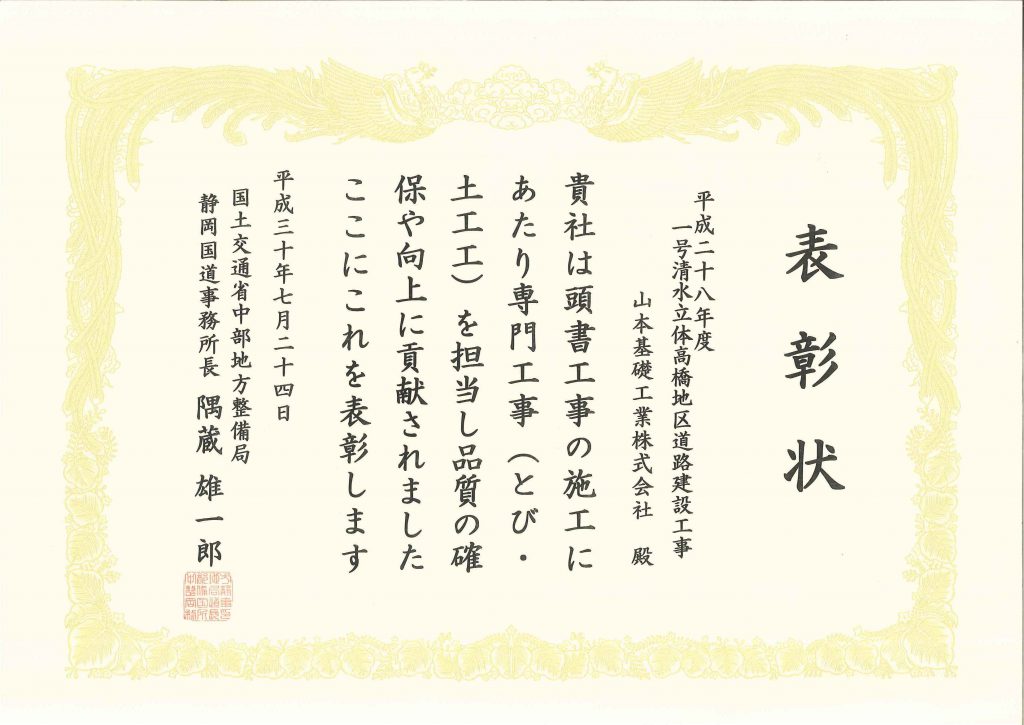 表彰状
平成二十八年度
一号清水立体高橋地区道路建設工事
山本基礎工業株式会社 殿
貴社は頭書工事の施工に
あたり専門工事（とび・
土工工）を担当し品質の確
保や向上に貢献されました
ここにこれを表彰します
平成三十年七月二十四日
国土交通省中部地方整備局
静岡国道事務所長 隅蔵 雄一郎